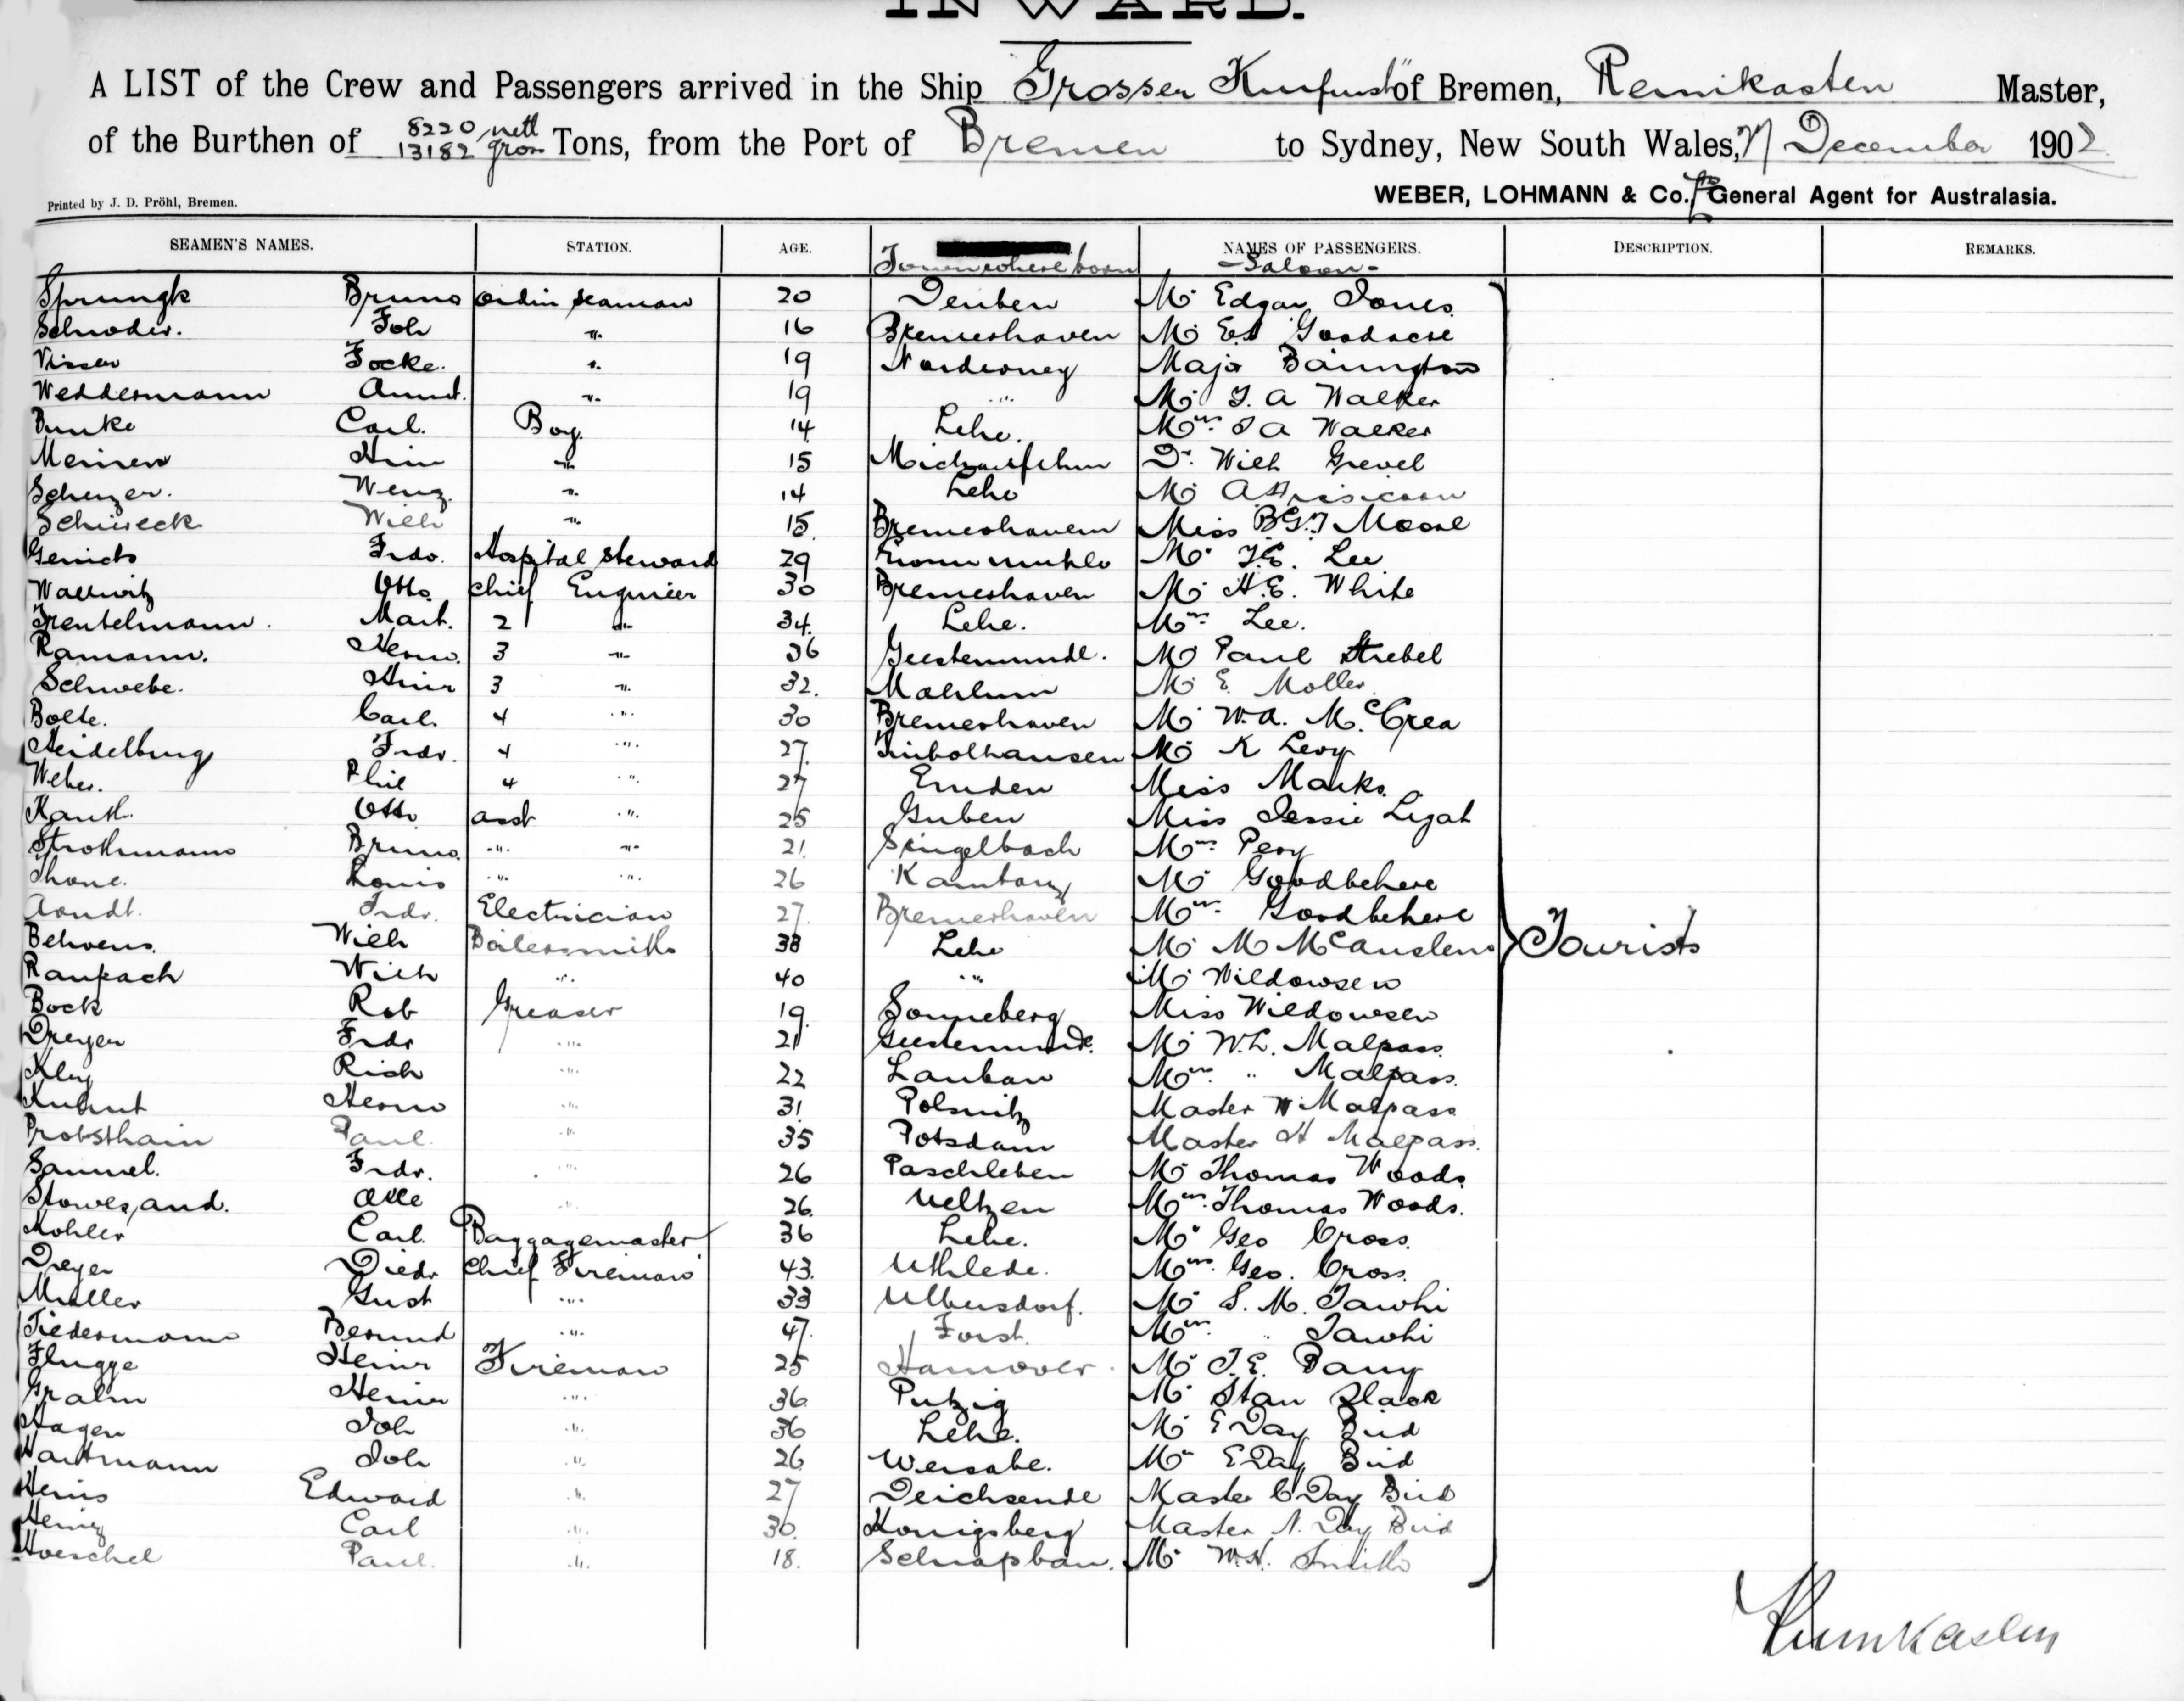 INWARD.
A LIST of the Crew and Passengers arrived in the Ship Grosser Kurfurst of Bremen, Reimkasten Master,
of the Burthen of 8220 nett 13182 gross Tons, from the Port of Bremen to Sydney, New South Wales, December 1902
Printed by J. D. Pröhl, Bremen. WEBER, LOHMANN & Co. General Agent for Australasia.
SEAMEN'S NAMES. STATION. AGE. Town where born NAMES OF PASSENGERS. DESCRIPTION. REMARKS.
-Saloon-
Sprungk Bruno ordin seaman 20 Deuben Mr Edgar Jones
Schroder. Joh " 16 Bremerhaven Mr Ed Goodacre
Visser Focke. " 19 Norderney Major Barington
Weddermann " 19 " Mr T. A Walker
Bunke Carl. Boy. 14 Lehe. Mrs T A Walker
Meinen Hinr " 15 Dr. Wilh Grevel
Scherzer. Wenz. " 14 Lehe Mr
Schiereck Wilh " 15. Bremerhaven Miss Moore
Frdr. Hospital Steward 29 Mr T.E. Lee
Wallwitz Otto. chief Engineer 30 Bremerhaven Mr H.E. White
Trentelmann. Mart. 2 " 34. Lehe. Mrs Lee.
Ramann. Herm. 3 " 36 Geestemunde. Mr Paul Strebel
Schwebe. Hinr 3 " 32. Mahlum Mr E. Moller
Bolte. Carl. 4 " 30 Bremerhaven Mr W.A. McCrea
Heidelburg Frdr. 4 " 27. Mr K Levy
Weber. Phil 4 " 27 Emden Miss Marks.
Kauth. Otto asst " 25 Guben Miss Jessie
Strothmann Bruno. " " 21. Singelbach Mrs
Thone. Louis " " 26 Mr Goodbehere
Arndt. Frdr. Electrician 27. Bremerhaven Mrs Goodbehere
Behrens. Wilh Boilersmith 38 Lehe Mr M McCauslen Tourists
Raupach Wilh " 40 " Mr Wildowsen
Bock Rob Greaser 19. Sonneberg Miss Wildowsen
Dreyer Frdr " 21 Geestemunde. Mr W.L. Malpass.
Kley Rich " 22 Lauban Mrs " Malpass.
Kuhnt Herm " 31 Polsnitz Master W Malpass
Probsthain Paul. " 35 Potsdam Master H Malpass.
Samuel. Frdr. " 26 Paschleben Mr Thomas Woods
Stowesand. Otto " 26. Ueltzen Mrs Thomas Woods.
Kohler Carl. Baggagemaster 36 Lehe. Mr Geo Cross.
Dreyer Diedr Chief Fireman 43. Uthlede. Mrs Geo. Cross.
Muller Gust " 33 Ulbersdorf. Mr S. M. Tawhi
Tiedermann Berend " 47. Forst. Mrs " Tawhi
Flugge Heinr Fireman 25 Hannover. Mr T. E. Barry
Gralm Heinr " 36 Putzig Mr Stan Slack
Hagen Joh " 36 Lehe. Mr E Day Bird
Hartmann Joh " 26 Wersabe. Mrs E Day Bird
Heins Edward " 27 Deichsende Master C Day Bird
Heinz Carl " 30. Konigsberg Master N. Day Bird
Hoeschel Paul. " 18. Schnapbau. Mr W.H. Smith
Reimkasten